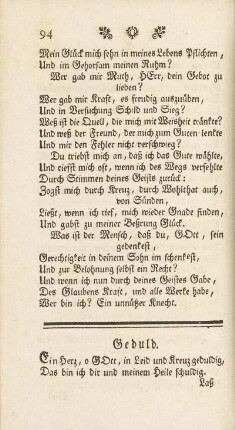 94
Mein Glück mich sehn in meines Lebens Pflichten,
Und im Gehorsam meinen Ruhm?
Wer gab mir Muth, HErr, dein Gebot zu
lieben?
Wer gab mir Kraft, es freudig auszuüben,
Und in Versuchung Schild und Sieg?
Weß ist die Quell, die mich mit Weisheit tränkte?
Und weß der Freund, der mich zum Guten lenkte
Und mir den Fehler nicht verschwieg?
Du triebst mich an, daß ich das Gute wählte,
Und riefst mich oft, wenn ich des Wegs verfehlte
Durch Stimmen deines Geists zurück:
Zogst mich durch Kreuz, durch Wohlthat auch,
von Sünden,
Ließt, wenn ich rief, mich wieder Gnade finden,
Und gabst zu meiner Beßrung Glück.
Was ist der Mensch, daß du, GOtt, sein
gedenkest,
Gerechtigkeit in deinem Sohn im schenkest,
Und zur Belohnung selbst ein Recht?
Und wenn ich nun durch deines Geistes Gabe,
Des Glaubens Kraft, und alle Werke habe,
Wer bin ich? Ein unnützer Knecht.
Geduld.
Ein Herz, o GOtt, in Leid und Kreuz geduldig,
Das bin ich dir und meinem Heile schuldig.
Laß